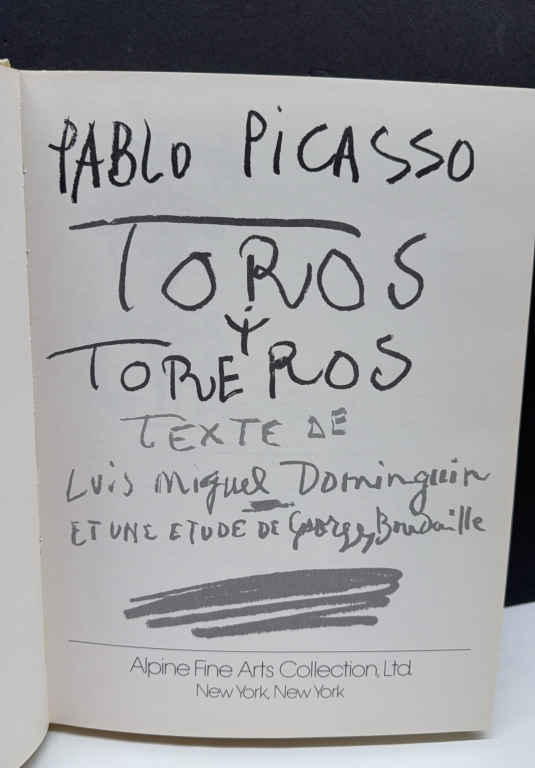 PABLO PiCASSO
TOROS
Y
TOREROS
TEXTE DE
Luis Miguel Dominguin
ET UNE ETUDE DE Georges Boudaille
Alpine Fine Arts Collection, Ltd.
New York, New York